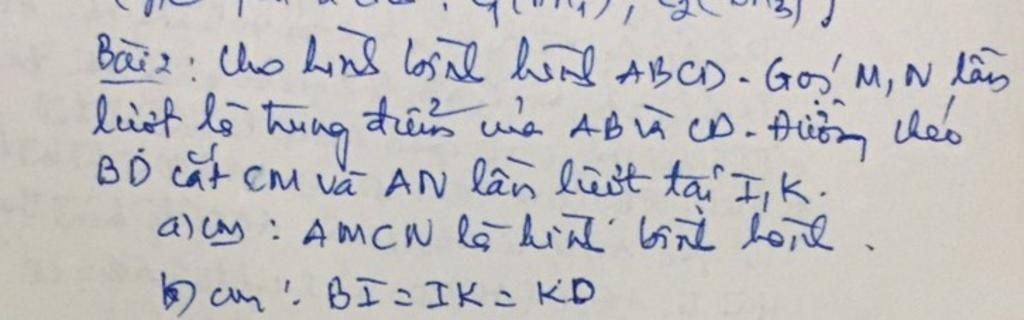 Bài 2: Cho hình bình hành ABCD. Gọi M, N lần
lượt là trung điểm của AB và CD. Đường chéo
BD cắt CM và AN lần lượt tại I, K.
a) cm : AMCN là hình bình hành.
b) cm : BI = IK = KD